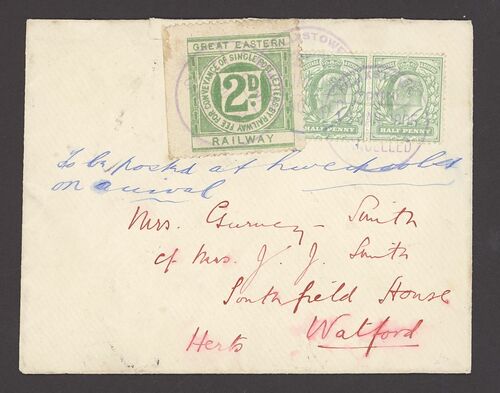 GREAT EASTERN
FEE FOR CONVEYANCE OF SINGLE POST LETTERS BY RAILWAY
2D.
RAILWAY
HALF PENNY
HALF PENNY
To be posted at
on arrival
Mrs. Gurney-Smith
c/o Mrs. J. J. Smith
Southfield House
Watford
Herts